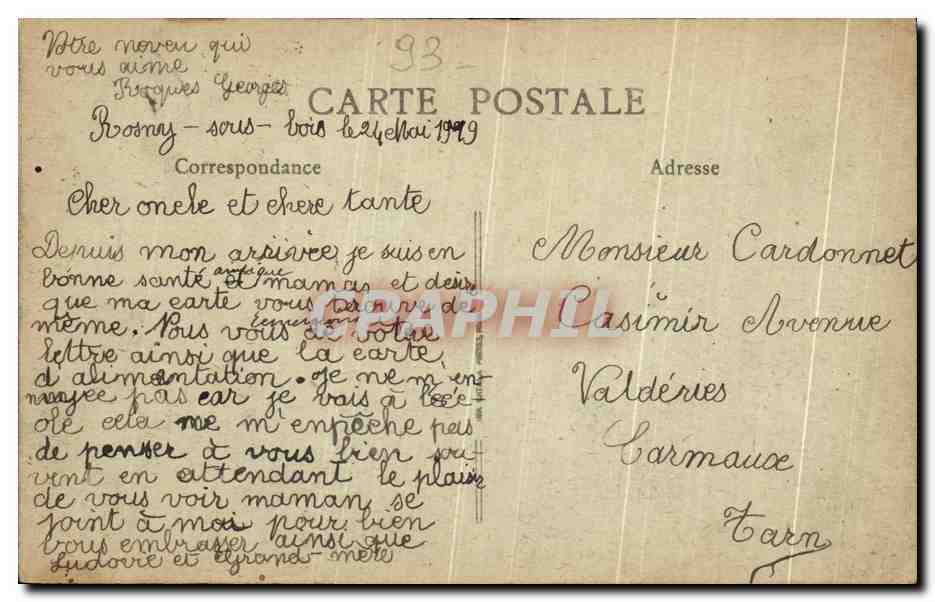 Vtre noveu qui
vous aime
Roques Georges
93
CARTE POSTALE
Rosny-sous-bois le 24 Mai 1919
Correspondance
Cher oncle et chere tante
Depuis mon arrivée je suis en
bonne santé ainsique maman et désire
que ma carte vous trouve de
même. Nous vous de votre
lettre ainsi que la carte
d'alimentation. Je ne m'en-
nuyee pas car je vais à l'éc
ole cela ne m'enpêche pas
de penser à vous bien sou-
vent en attendant le plaisir
de vous voir maman se
joint à moi pour bien
vous embrasser ainsi que
Ludovic et Grand-mère
Adresse
Monsieur Cardonnet
Casimir Avenue
Valdéries
Carmaux
Tarn
CPAPHIL